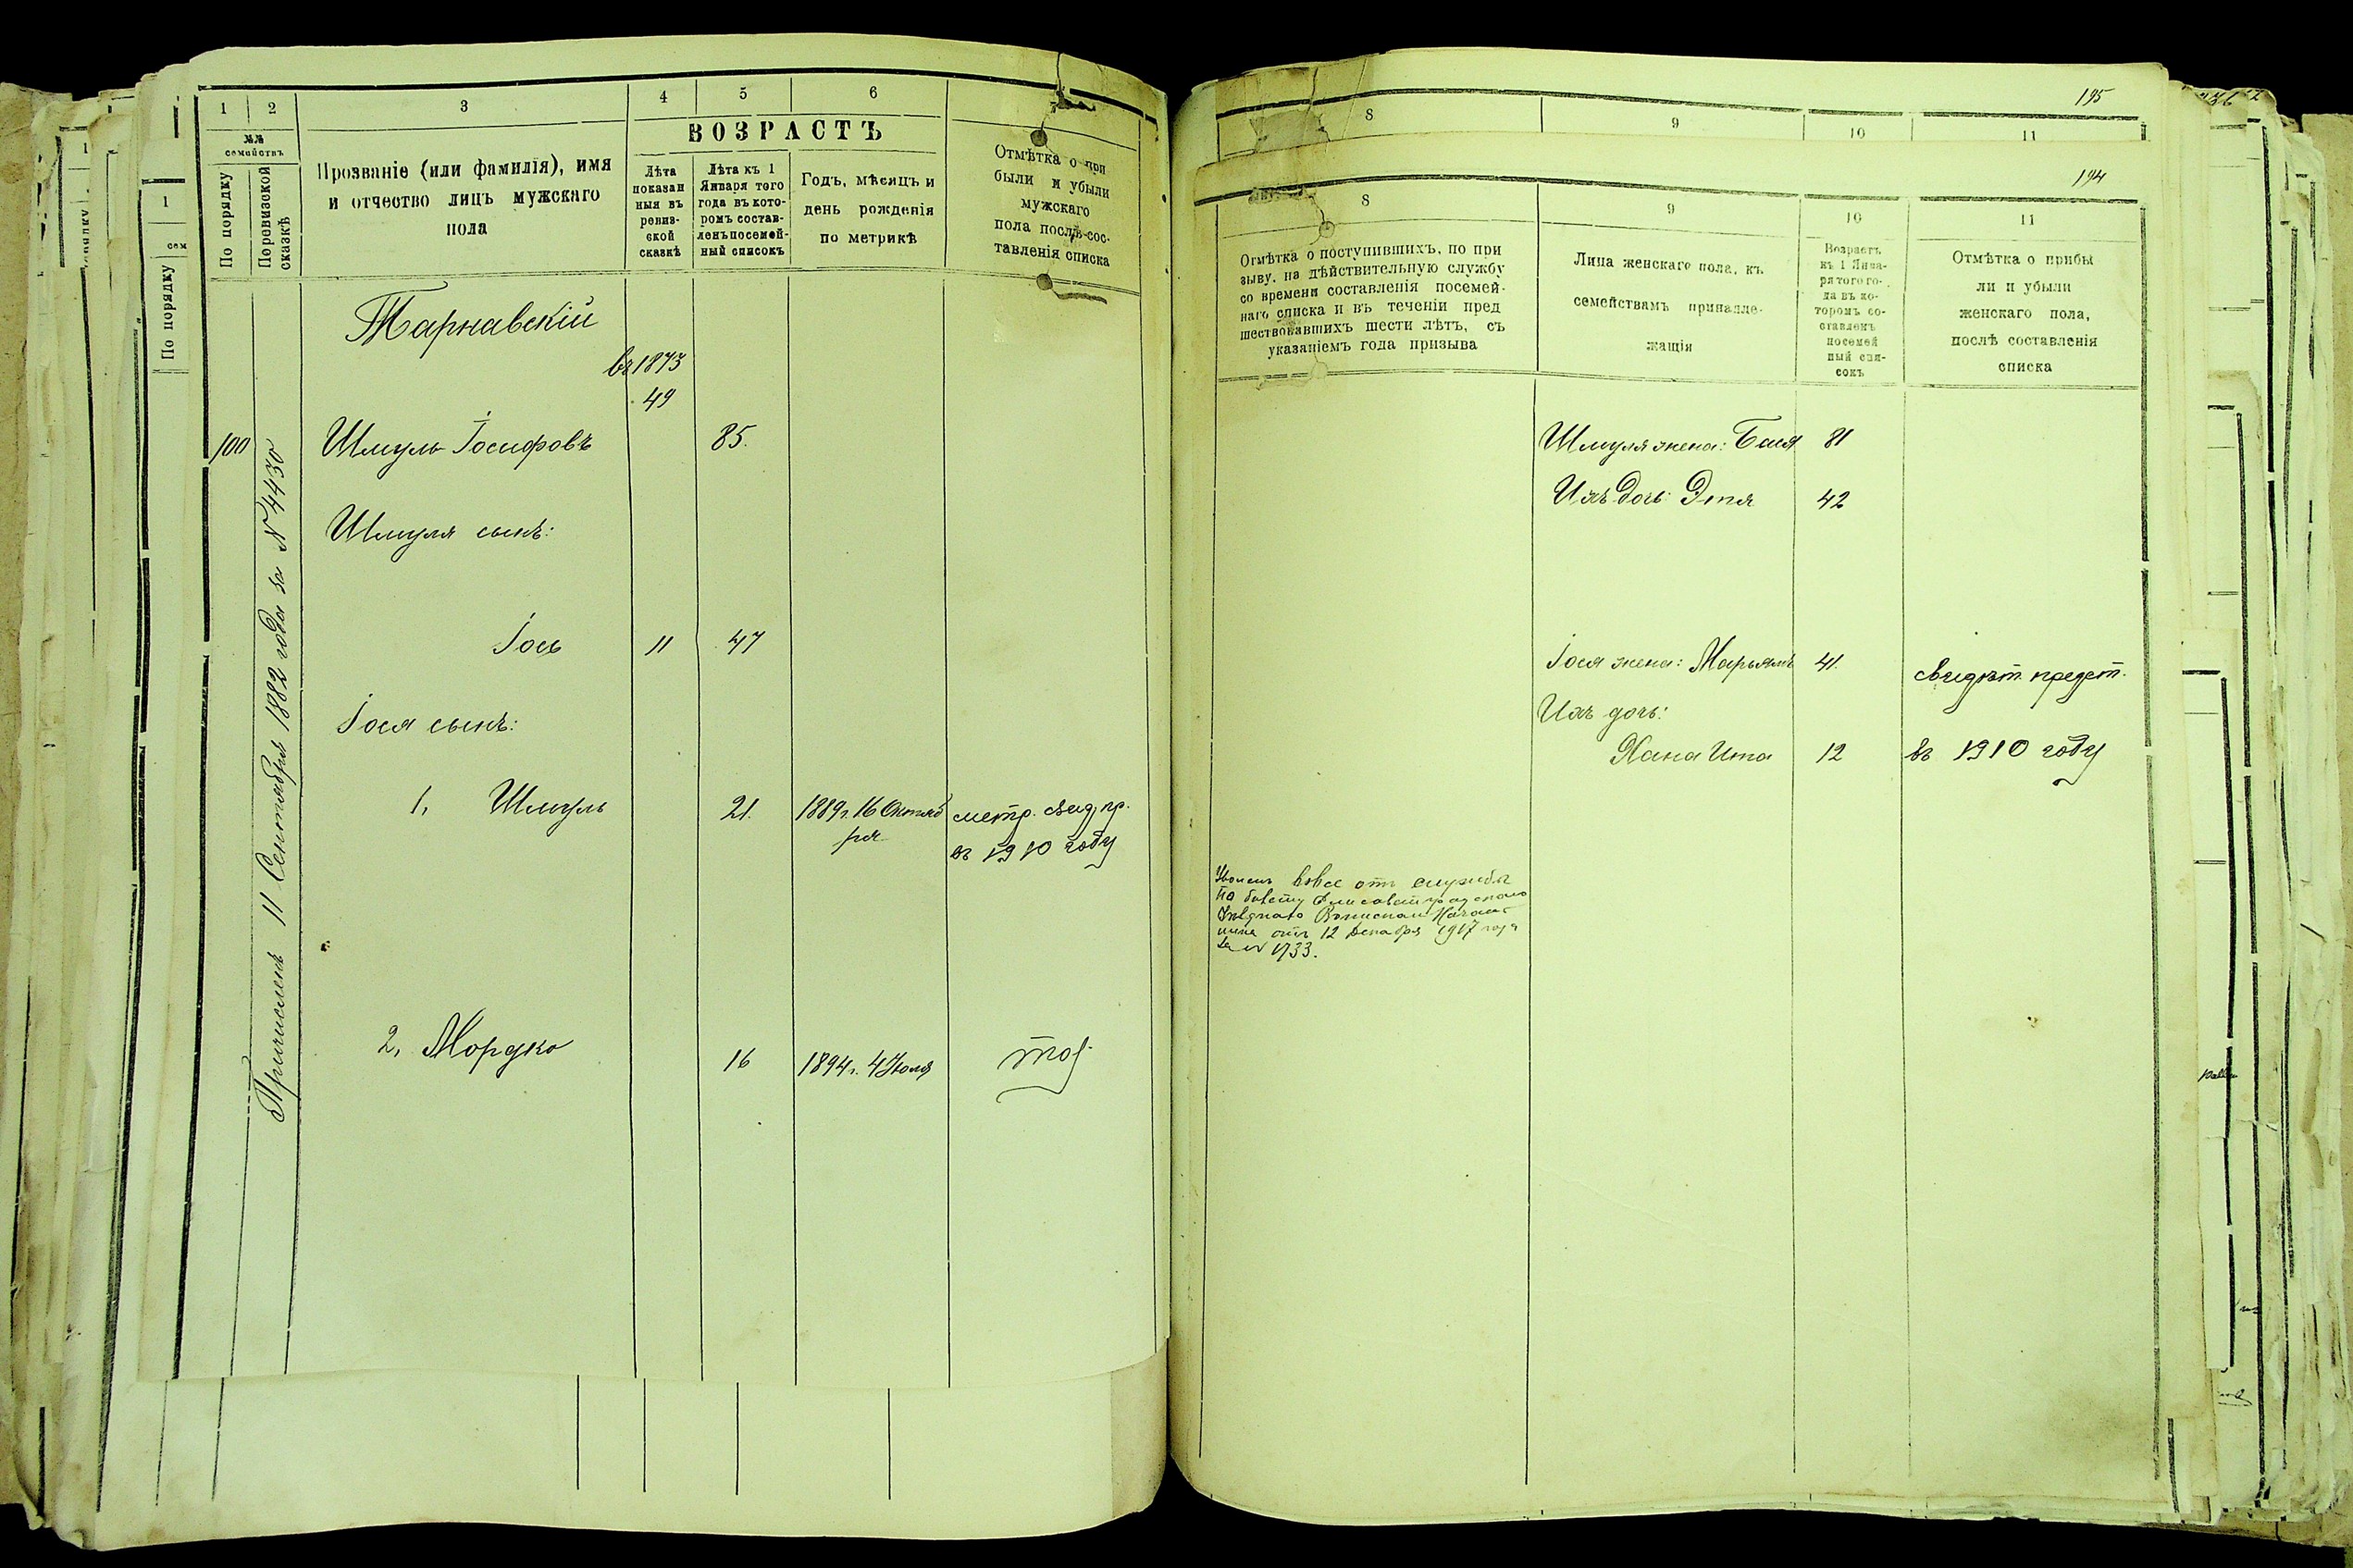 1 2 3 4 5 6
№№ семействъ
По порядку
По ревизской сказкѣ
Прозваніе (или фамилія), имя
и отчество лицъ мужскаго
пола
ВОЗРАСТЪ
Лѣта
показан
ныя въ
ревиз-
ской
сказкѣ
Лѣта къ 1
Января того
года въ кото-
ромъ состав-
ленъ посемей-
ный списокъ
Годъ, мѣсяцъ и
день рожденія
по метрикѣ
Отмѣтка о при
были и убыли
мужскаго
пола послѣ сос-
тавленія списка
Тарнавскій
въ 1873
49
100 Шмуль Іосифовъ 85.
Причисленъ 11 Сентября 1882 года за № 4430
Шмуля сынъ:
Іось 11 47
Іося сынъ:
1, Шмуль 21. 1889 г. 16 Октяб
ря
метр. свид. пр.
въ 1910 году
2, Мордко 16 1894 г. 4 Іюля тоj
195
8 9 10 11
194
8 9 10 11
Отмѣтка о поступившихъ, по при
зыву, на дѣйствительную службу
со времени составленія посемей-
наго списка и въ теченіи пред
шествовавшихъ шести лѣтъ, съ
указаніемъ года призыва
Лица женскаго пола, къ
семействамъ принадле-
жащія
Возрастъ
къ 1 Янва-
ря того го-
да въ ко-
торомъ со-
ставленъ
посемей
ный спи-
сокъ
Отмѣтка о прибы
ли и убыли
женскаго пола,
послѣ составленія
списка
Шмуля жена: Бася 81
Ихъ дочь: Этя 42
Іося жена: Марьямъ 41. свидѣт. предст.
Ихъ дочь:
Хана Ита 12 въ 1910 году
вовсе отъ службы
Елисаветградскаго
Уѣзднаго Воинскаго Началь
ника отъ 12 Декабря 1917 года
за № 1733.
1
По порядку